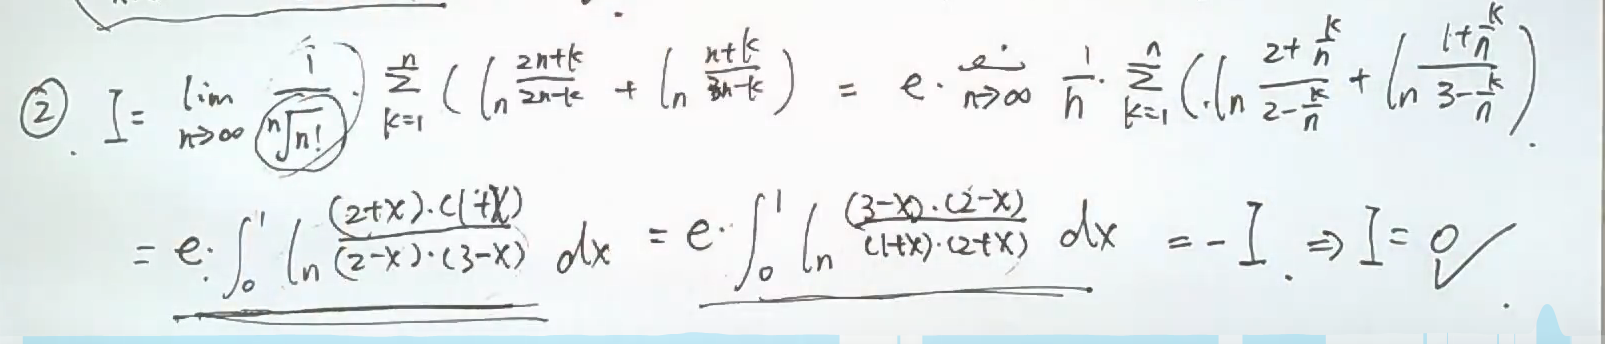 ② I = lim_{n→∞} \frac{1}{\sqrt[n]{n!}} · \sum_{k=1}^{n} ( ln \frac{2n+k}{2n-k} + ln \frac{n+k}{3n-k} ) = e · \lim_{n→∞} \frac{1}{n} · \sum_{k=1}^{n} ( ln \frac{2+\frac{k}{n}}{2-\frac{k}{n}} + ln \frac{1+\frac{k}{n}}{3-\frac{k}{n}} )
= e · \int_0^1 ln \frac{(2+x)·(1+x)}{(2-x)·(3-x)} dx = e · \int_0^1 ln \frac{(3-x)·(2-x)}{(1+x)·(2+x)} dx = -I. ⇒ I = 0 ✓.